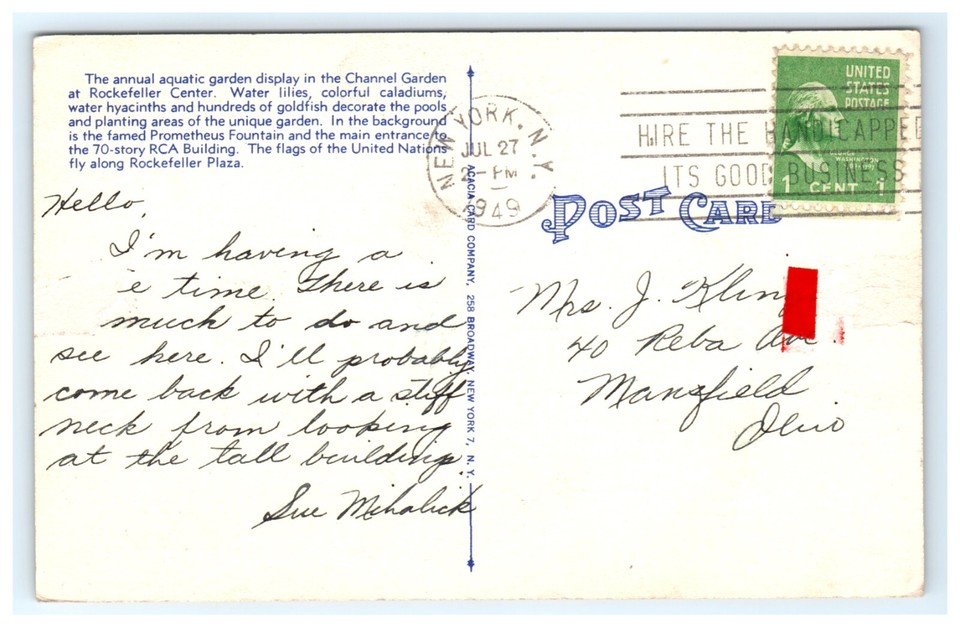 The annual aquatic garden display in the Channel Garden
at Rockefeller Center. Water lilies, colorful caladiums,
water hyacinths and hundreds of goldfish decorate the pools
and planting areas of the unique garden. In the background
is the famed Prometheus Fountain and the main entrance to
the 70-story RCA Building. The flags of the United Nations
fly along Rockefeller Plaza.
Hello,
I'm having a
time. There is
much to do and
see here. I'll probably
come back with a stiff
neck from looking
at the tall building.
Sue Mihalick
ACACIA CARD COMPANY, 258 BROADWAY, NEW YORK 7, N. Y.
NEW YORK, N.Y.
JUL 27
2-PM
1949
HIRE THE HANDICAPPED
ITS GOOD BUSINESS
UNITED
STATES
POSTAGE
WASHINGTON
1 CENT 1
POST CARD
Mrs. J.
40 Reba Ave.
Mansfield
Ohio